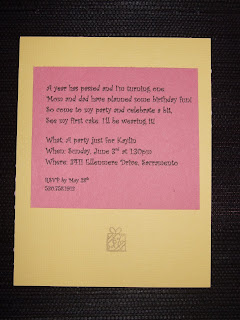 A year has passed and I'm turning one
Mom and dad have planned some birthday fun!
So come to my party and celebrate a bit,
See my first cake, I'll be wearing it!
What: A party just for Kaylin
When: Sunday, June 3rd at 1:30pm
Where: Ellenmere Drive, Sacramento
RSVP by May